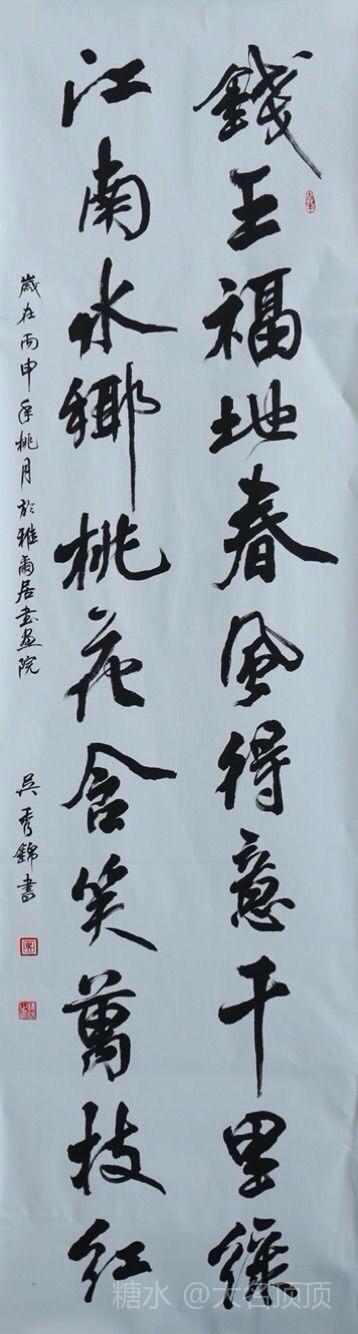 錢王福地春風得意千里綠
江南水鄉桃花含笑萬枝紅
歲在丙申年桃月於雅爾居書畫院 吳秀錦書
糖水 @大名顶顶